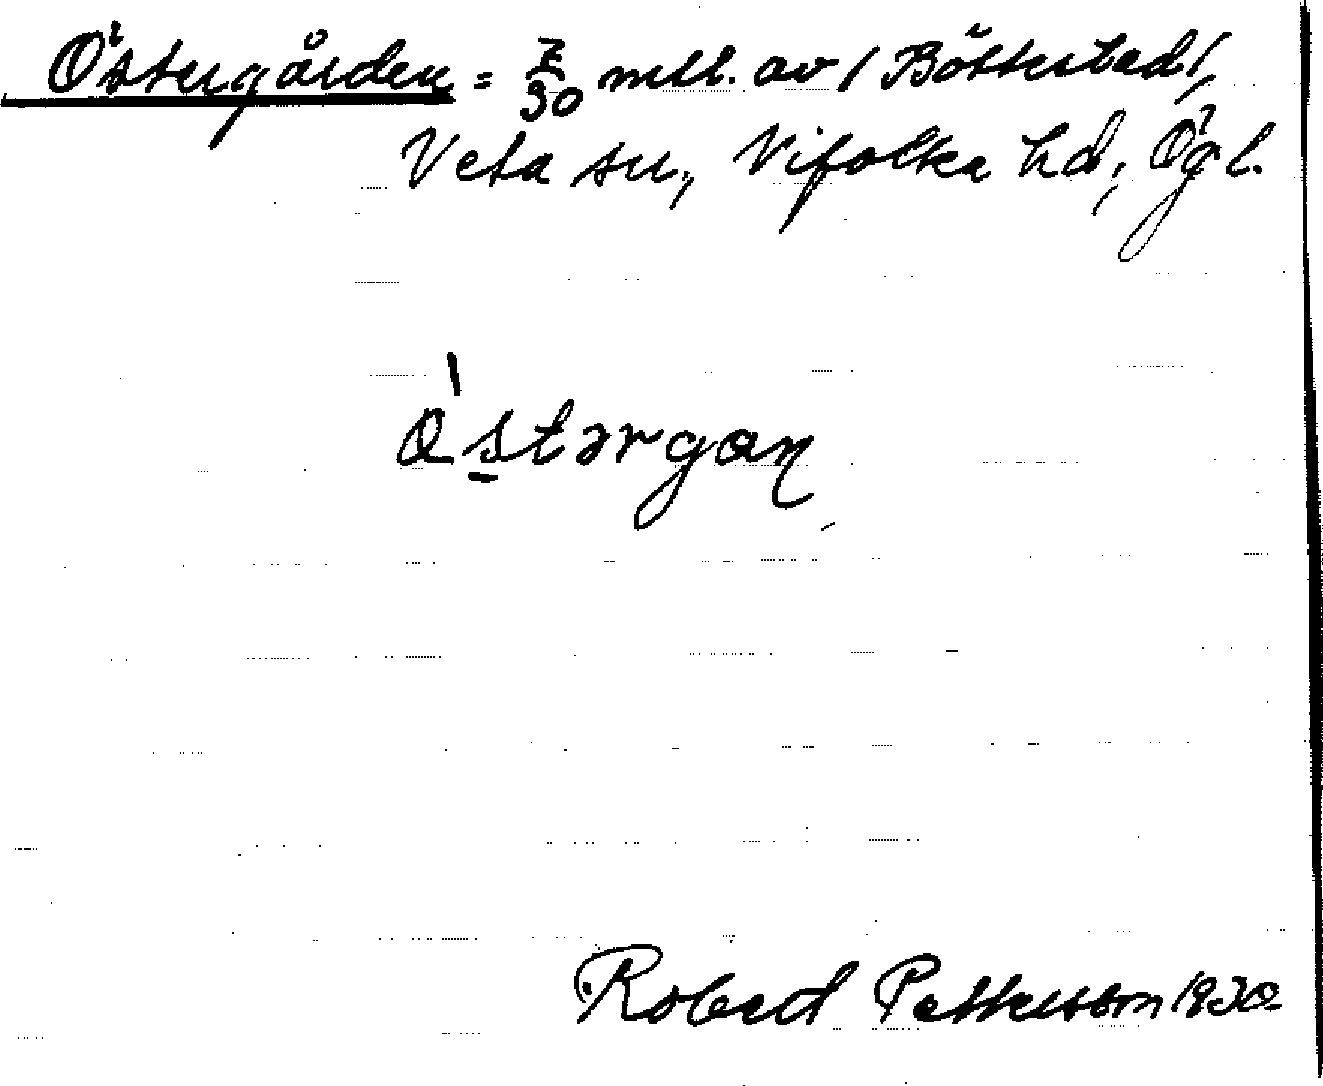 Östergården = 7/30 mtl. av / Bötterstad /,
Veta sn., Vifolka hd., Ögl.
östərgaɳ
Robert Pettersson 1930